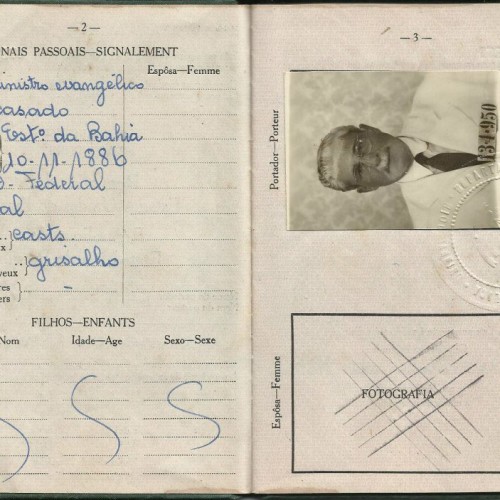 — 2 —
NAIS PASSOAIS—SIGNALEMENT
Espôsa—Femme
ministro evangélico
casado
Estº da Bahia
10-11-1886
Federal
al
casts.
x
grisalho
veux
res
ers
FILHOS—ENFANTS
Nom Idade—Age Sexo—Sexe
— 3 —
Portador—Porteur
Espôsa—Femme
FOTOGRAFIA